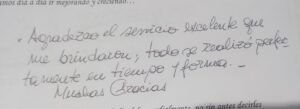 amos día a día ir mejorando y creciendo...
- Agradezco el servicio excelente que
me brindaron; todo se realizó perfec
tamente en tiempo y forma. -
Muchas Gracias
no sin antes decirles